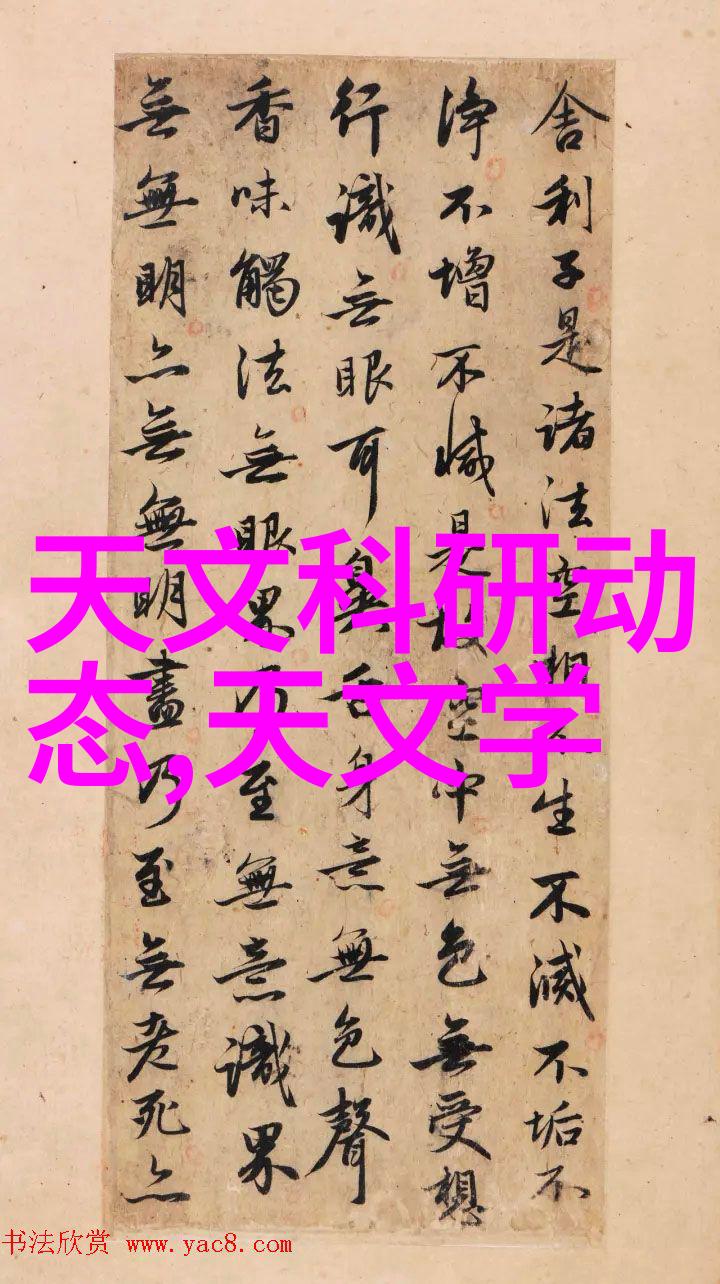 舍利子是諸法空相不生不滅不垢不
淨不增不減是故空中無色無受想
行識无眼耳鼻舌身意無色聲
香味觸法無眼界乃至無意識界
無無明亦無無明盡乃至無老死亦
天文科研动
态,天文学
书法欣赏 www.yac8.com